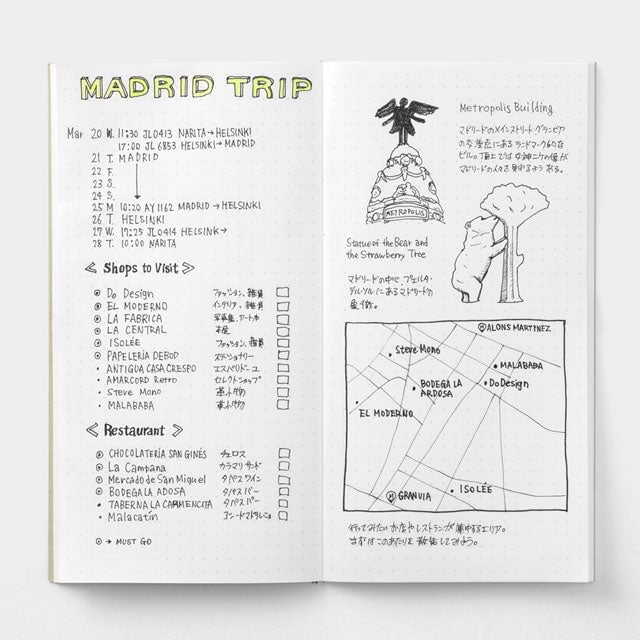 MADRID TRIP
Mar 20 W. 11:30 JL0413 NARITA→HELSINKI
17:00 JL6853 HELSINKI→MADRID
21 T. MADRID
22 F.
23 S.
24 S.
25 M 10:20 AY1162 MADRID→HELSINKI
26 T. HELSINKI
27 W. 17:25 JL0414 HELSINK→
28 T. 10:00 NARITA
≪ Shops to Visit ≫
⦿ Do Design ファッション、雑貨
⦿ EL MODERNO インテリア、雑貨
⦿ LA FABRICA 写真集、アート本
⦿ LA CENTRAL 本屋
⦿ ISOLÉE ファッション、雑貨
⦿ PAPELERÍA DEBOD ステーショナリー
• ANTIGUA CASA CRESPO エスパドリーユ
• AMARCORD Retro セレクトショップ
• Steve Mono 革小物
• MALABABA 革小物
≪ Restaurant ≫
⦿ CHOCOLATERÍA SAN GINÉS チュロス
⦿ La Campana カラマリサンド
⦿ Mercado de San Miguel タパス ワイン
⦿ BODEGA LA ADOSA タパス バー
• TABERNA LA CARMENCITA タパス バー
• Malacatín コシードマドリレーニョ
⦿ → MUST GO
Metropolis Building
マドリードのメインストリート グランビア
の交差点にあるランドマーク的な
ビル。頂上では女神ニケの像が
マドリードの人々を見守るようある。
METROPOLIS
Statue of the Bear and
the Strawberry Tree
マドリードの中心、プエルタ・
デル・ソルにあるマドリードの
象徴。
ALONS MARTINEZ
Steve Mono
MALABABA
BODEGA LA
ARDOSA
Do Design
EL MODERNO
ISOLÉE
GRANVIA
行ってみたいお店やレストランが集中するエリア。
まずはこのあたりを散策してみよう。